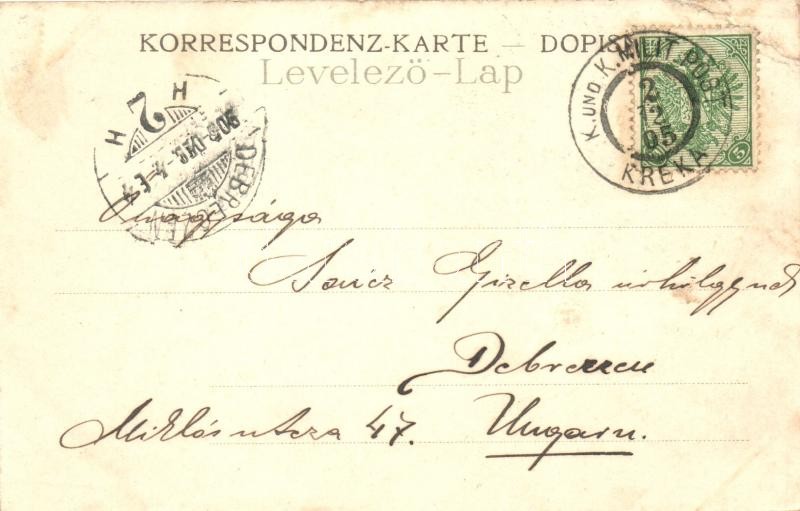 KORRESPONDENZ-KARTE — DOPIS
Levelező-Lap
K. UND K. MILIT. POST
2
12
05
KREKA
5
2
H H
DEBRECZEN
905 DEC
Őnagysága
Gizella úrhölgynek
Debreczen
Miklós utcza 47. Ungarn.